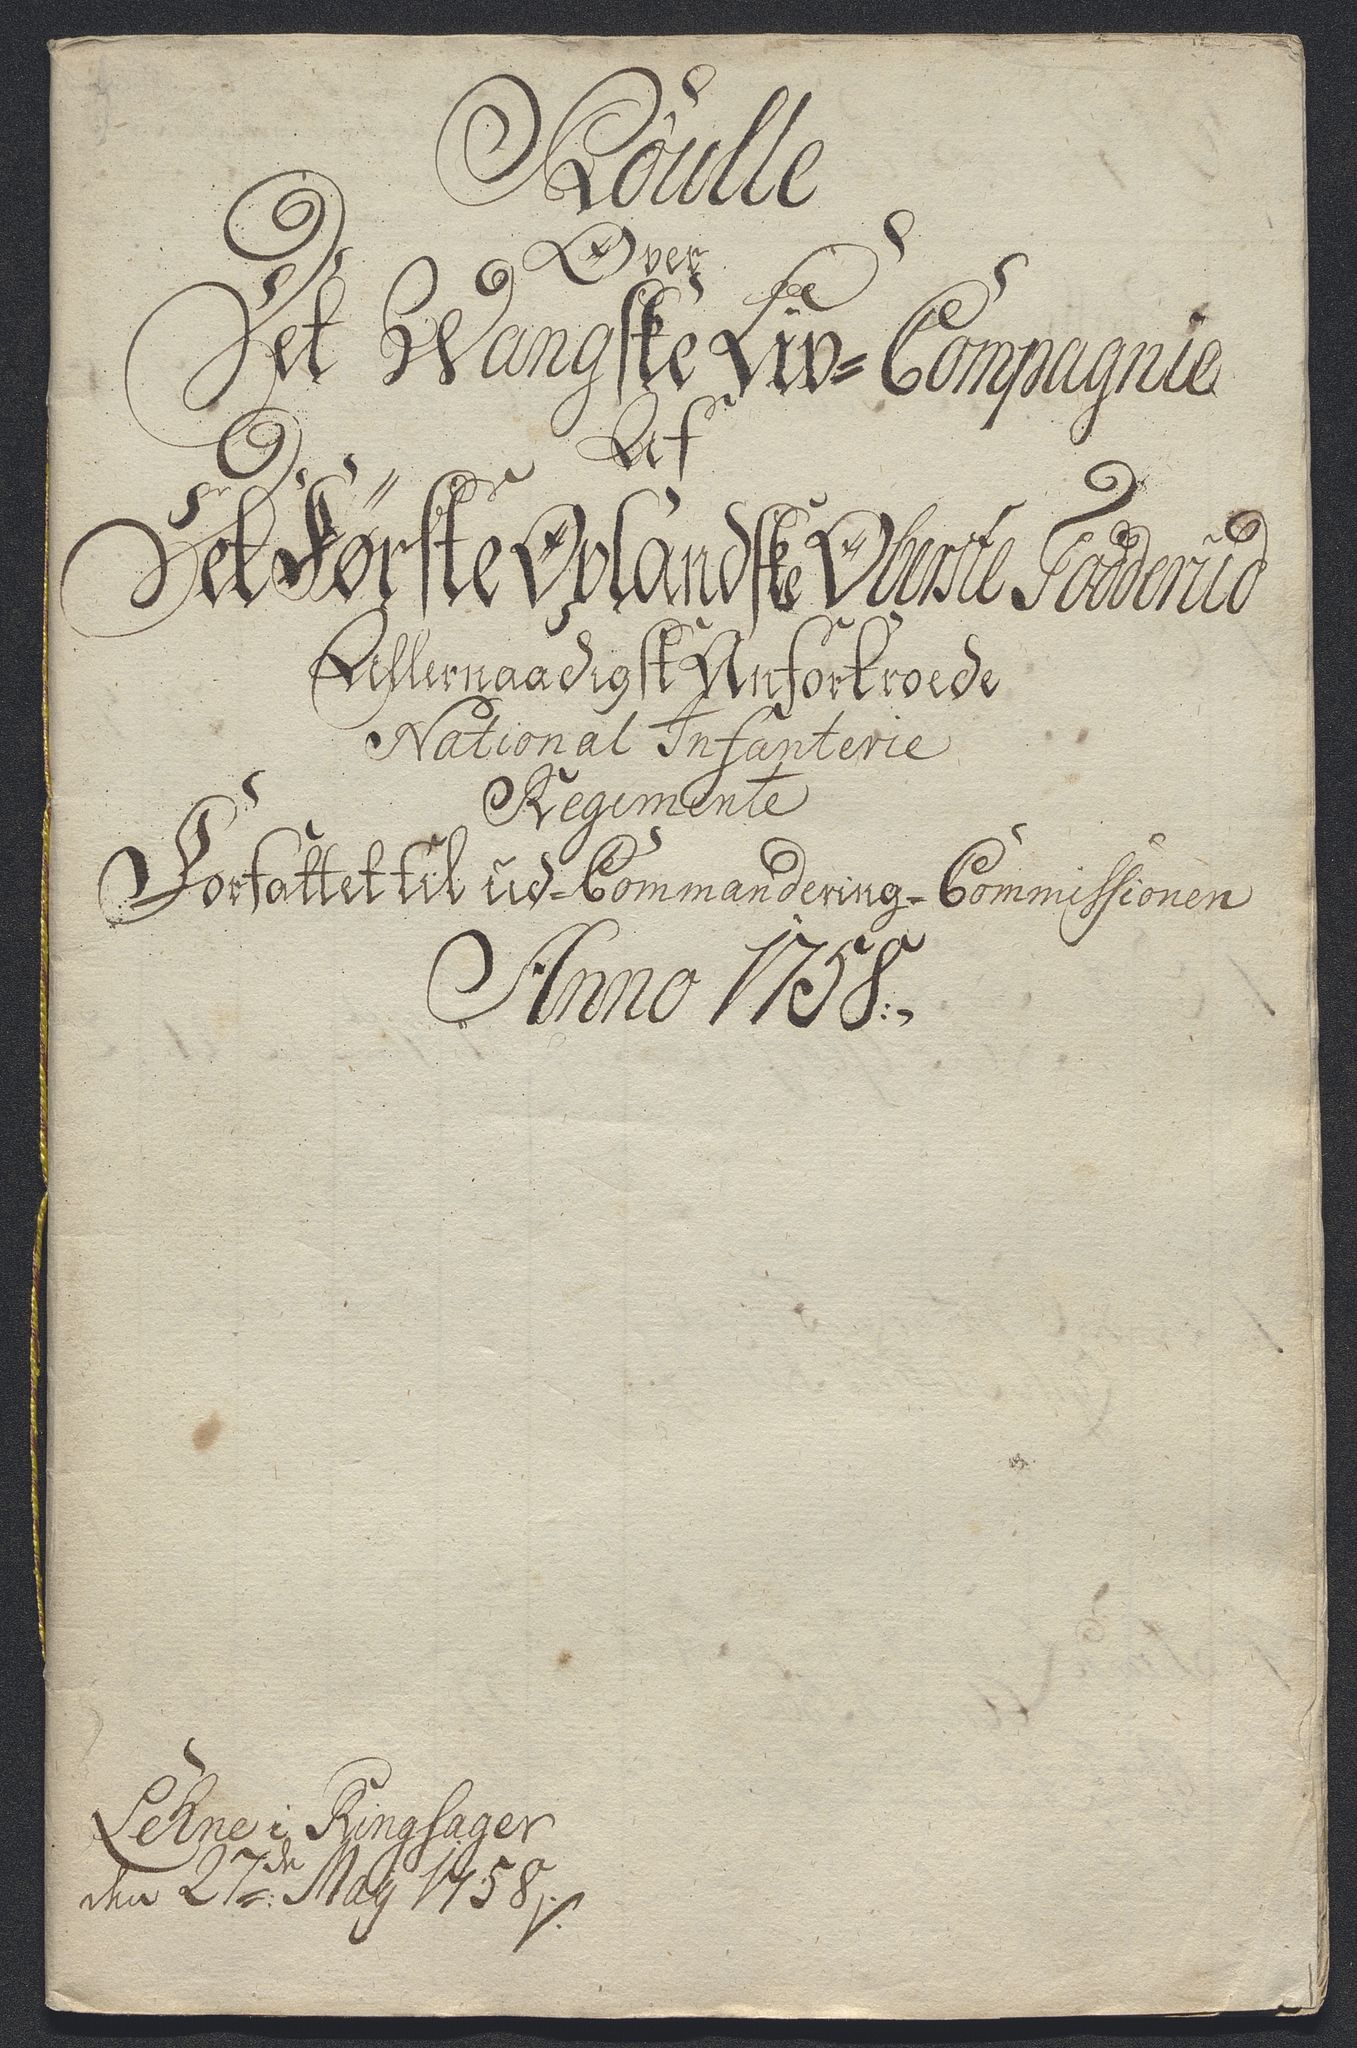 Roulle
Over
Det Wangske Liv=Compagnie
Af
Det Første Oplandske Oberste Todderud
Allernaadigst Anfortroede
National Infanterie
Regimente
Forfattet til ud-Commandering-Commissionen
Anno 1758.
Lehne i Ringsager
den 27de May 1758